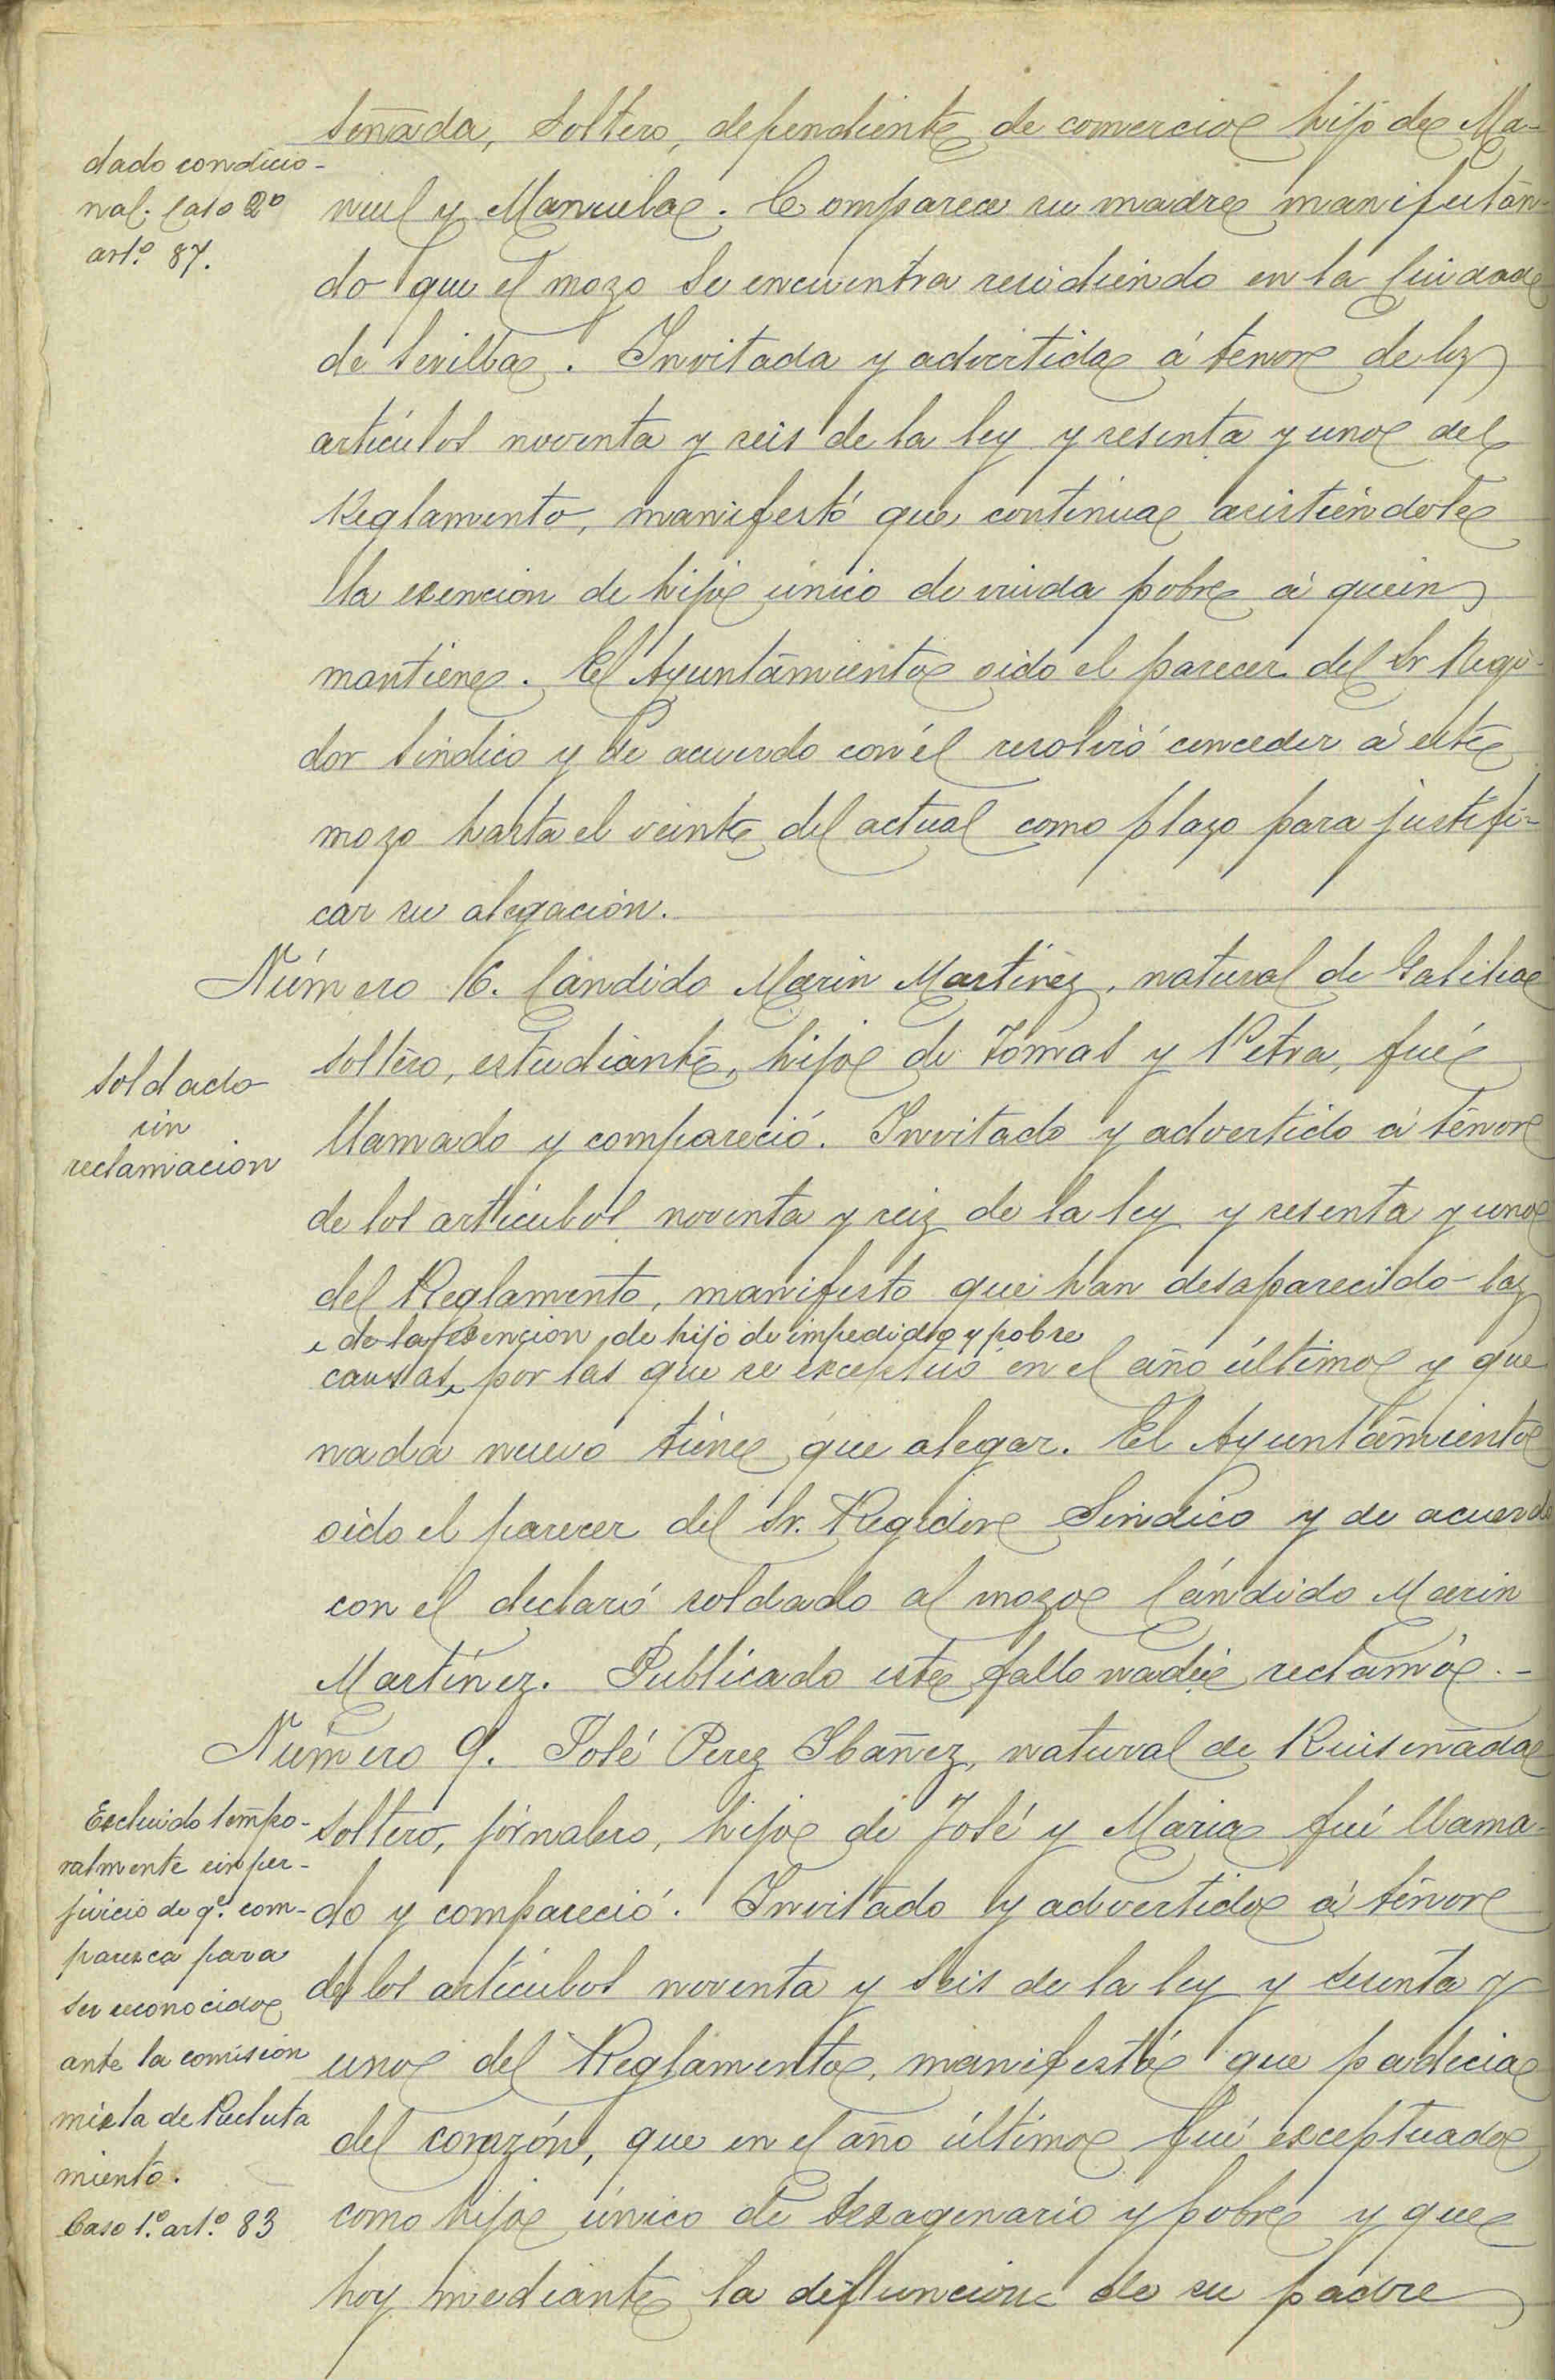 señada, soltero, dependiente de comercio hijo de Ma-
nuel y Manuela. Comparece su madre manifestan-
do que el mozo se encuentra residiendo en la Ciudad
de Sevilla. Invitada y advertida á tenor de los
artículos noventa y seis de la ley y sesenta y uno del
Reglamento, manifestó que continua asistiendole
la exencion de hijo único de viuda pobre á quien
mantiene. El Ayuntamiento oido el parecer del Sr Regi-
dor Sindico y de acuerdo con él resolvió conceder á este
mozo hasta el veinte del actual como plazo para justifi-
car su alegación.
dado condicio-
nal. Caso 2º
artº 87.
Número 16. Cándido Marin Martinez, natural de Galicia
soltero, estudiante, hijo de Tomas y Petra, fué
llamado y compareció. Invitado y advertido á tenor
de los artículos noventa y seis de la ley y sesenta y uno
del Reglamento, manifesto que han desaparecido las
de la exencion de hijo de impedido y pobre
causas, por las que se exceptuó en el año último y que
nada nuevo tiene que alegar. El Ayuntamiento
oido el parecer del Sr. Regidor Sindico y de acuerdo
con el declaró soldado al mozo Cándido Marin
Martinez. Publicado este fallo nadie reclamó.-
Soldado
sin
reclamacion
Número 9. José Perez Ibañez, natural de Ruiseñada
soltero, jornalero, hijo de José y Maria fué llama-
do y compareció. Invitado y advertido á tenor
de los artículos noventa y seis de la ley y sesenta y
uno del Reglamento, manifestó que padecia
del corazón, que en el año último fué exceptuado
como hijo único de sexagenario y pobre y que
hoy mediante la defuncion de su padre
Excluido tempo-
ralmente sin per-
juicio de qe. com-
paresca para
ser reconocido
ante la comisión
mixta de Recluta
miento.
Caso 1º. artº. 83